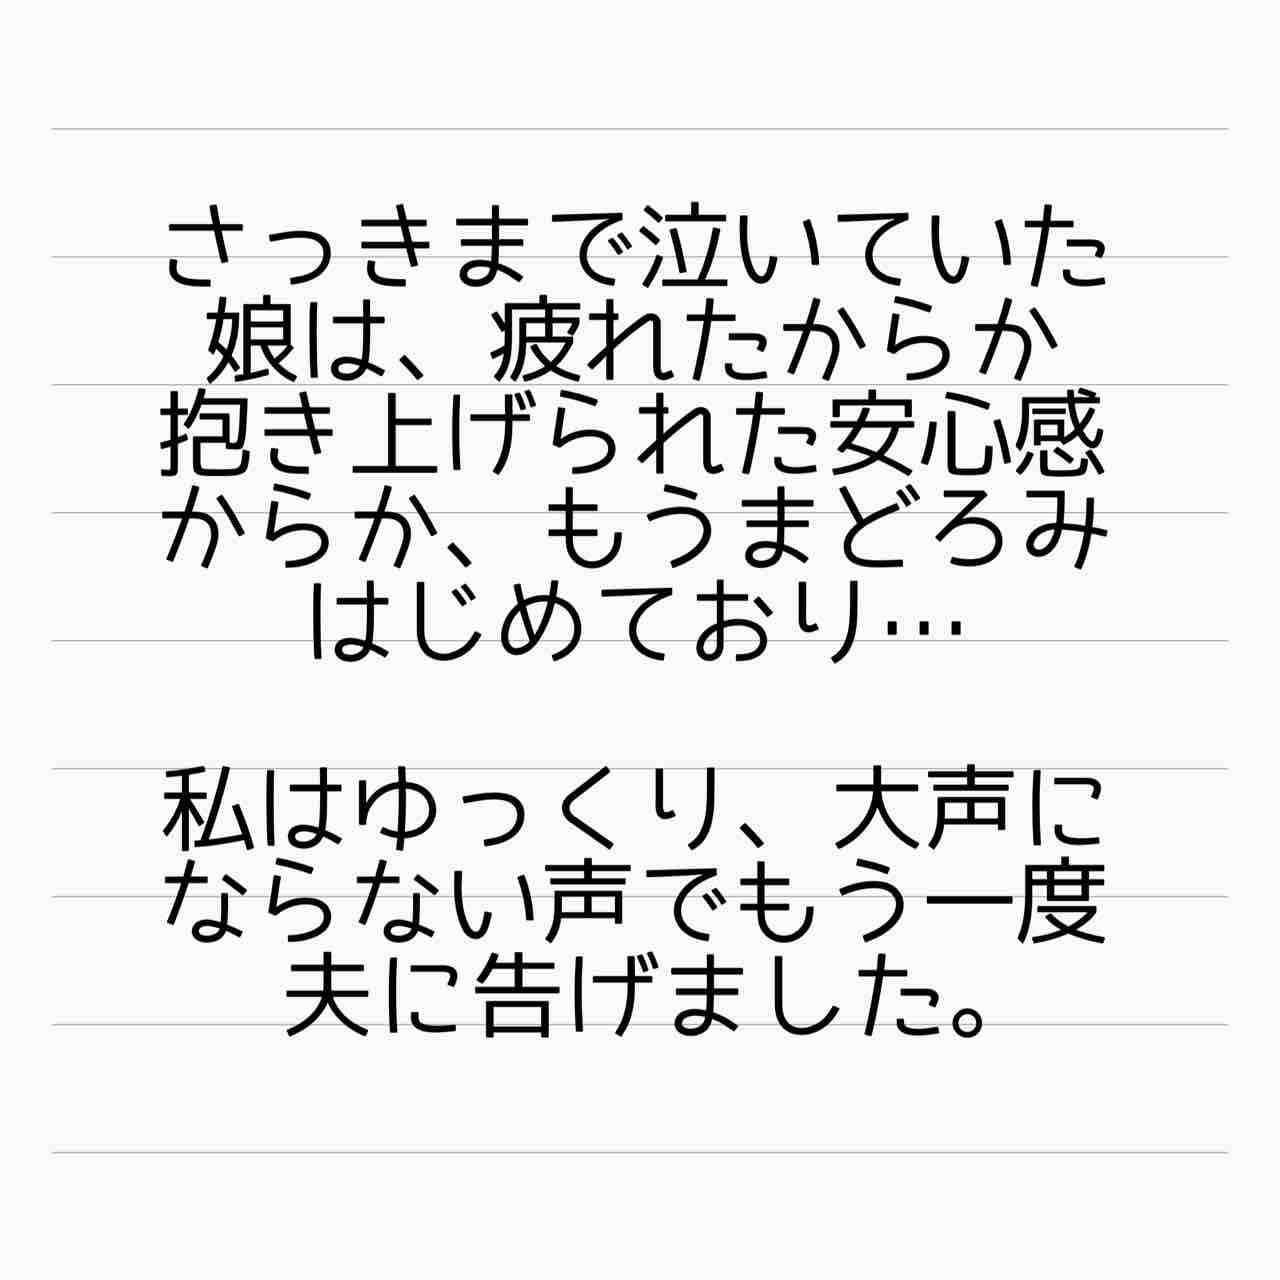 さっきまで泣いていた
娘は、疲れたからか
抱き上げられた安心感
からか、もうまどろみ
はじめており…
私はゆっくり、大声に
ならない声でもう一度
夫に告げました。